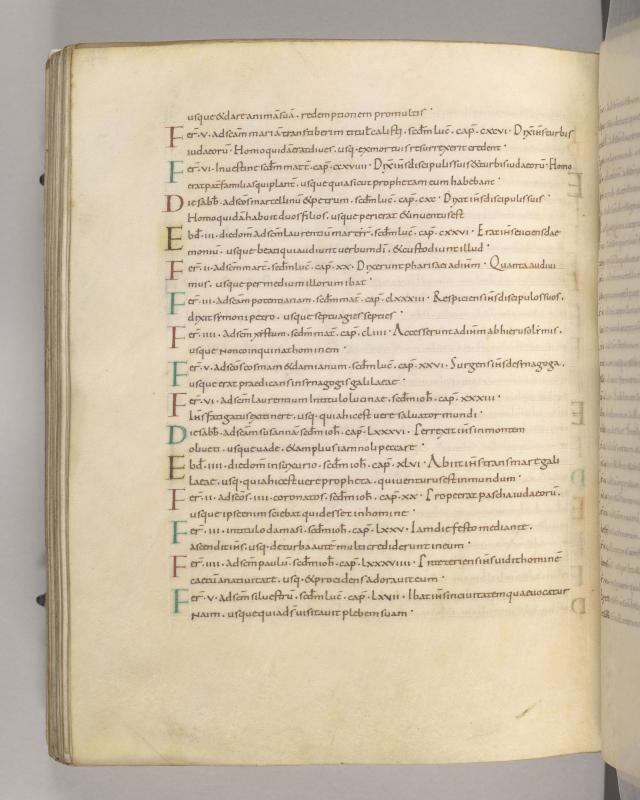 usque & dare animã suã . redemptionem pro multis .
Fer . v . ad scam mariã trans tiberim titul calisti . secdm luc . cap . cxcvi . Dx ihs turbis
iudaeorũ . Homo quidã erat dives . usq . ex mortuis resurrexerit credent .
Fer . vi . In vestine secdm mat . cap . ccxviiii . Dx ihs discipulis suis & turbis iudaeorũ . Homo
erat paterfamilias qui plant . usque quia sicut prophetam eum habebant .
Die sabb . ad scos marcellinũ & petrum . secdm luc . cap . cxc . Dixit ihs discipulis suis
Homo quidã habuit duos filios . usque perierat & inventus est
Ebd . iii . die dom ad scm laurentiũ martyr . secdm luc . cap . cxxvi . Erat ihs eiciens dae
monium . usque beati qui audiunt verbum di . & custodiunt illud .
Fer . ii . ad scm marc . secdm luc . cap . xx . Dixerunt pharisaei ad ihm . Quanta audivi
mus . usque per medium illorum ibat .
Fer . iii . ad scam potentianam . secdm mat . cap . clxxxiii . Respiciens ihs discipulos suos .
dixit symoni petro . usque septuagies septies .
Fer . iiii . ad scm xystum . secdm mat . cap . cliiii . Accesserunt ad ihm ab hierosolymis .
usque non coinquinat hominem .
Fer . v . ad scos cosmam & damianum . secdm luc . cap . xxvi . Surgens ihs de synagoga .
usque erat praedicans in synagogis galilaeae .
Fer . vi . ad scm laurentium in titulo lucinae . secdm ioh . cap . xxxiii .
Ihs fatigatus ex itinere . usq . quia hic est vere salvator mundi .
Die sabb . ad scam susannã . secdm ioh . cap . lxxxvi . Perrexit ihs in montem
oliveti . usque vade . & amplius iam noli peccare .
Ebd . iiii . die dom in suxurio . secdm ioh . cap . xlvi . Abiit ihs trans mare gali
laeae . usq . quia hic est vere propheta . qui venturus est in mundum .
Fer . ii . ad scos . iiii . coronatos . secdm ioh . cap . xx . Prope erat pascha iudaeorũ .
usque ipse enim sciebat quid esset in homine .
Fer . iii . in titulo damasi . secdm ioh . cap . lxxv . Iam die festo mediante .
ascendit ihs . usq . de turba autẽ multi crediderunt in eum .
Fer . iiii . ad scm paulũ . secdm ioh . cap . lxxxviiii . Praeteriens ihs vidit hominẽ
caecũ a nativitate . usq . & procidens adoravit eum .
Fer . v . ad scm silvestrũ . secdm luc . cap . lxvii . Ibat ihs in civitatem quae vocatur
Naim . usque quia ds visitavit plebem suam .